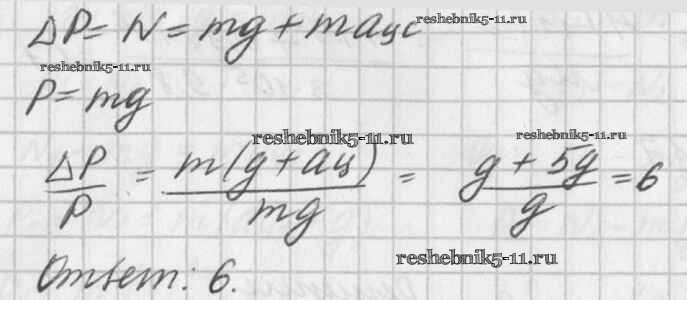 ΔP = N = mg + maцс
reshebnik5-11.ru
reshebnik5-11.ru
P = mg
reshebnik5-11.ru
reshebnik5-11.ru
ΔP/P = m(g + aц)/mg = g + 5g/g = 6
reshebnik5-11.ru
Ответ: 6.